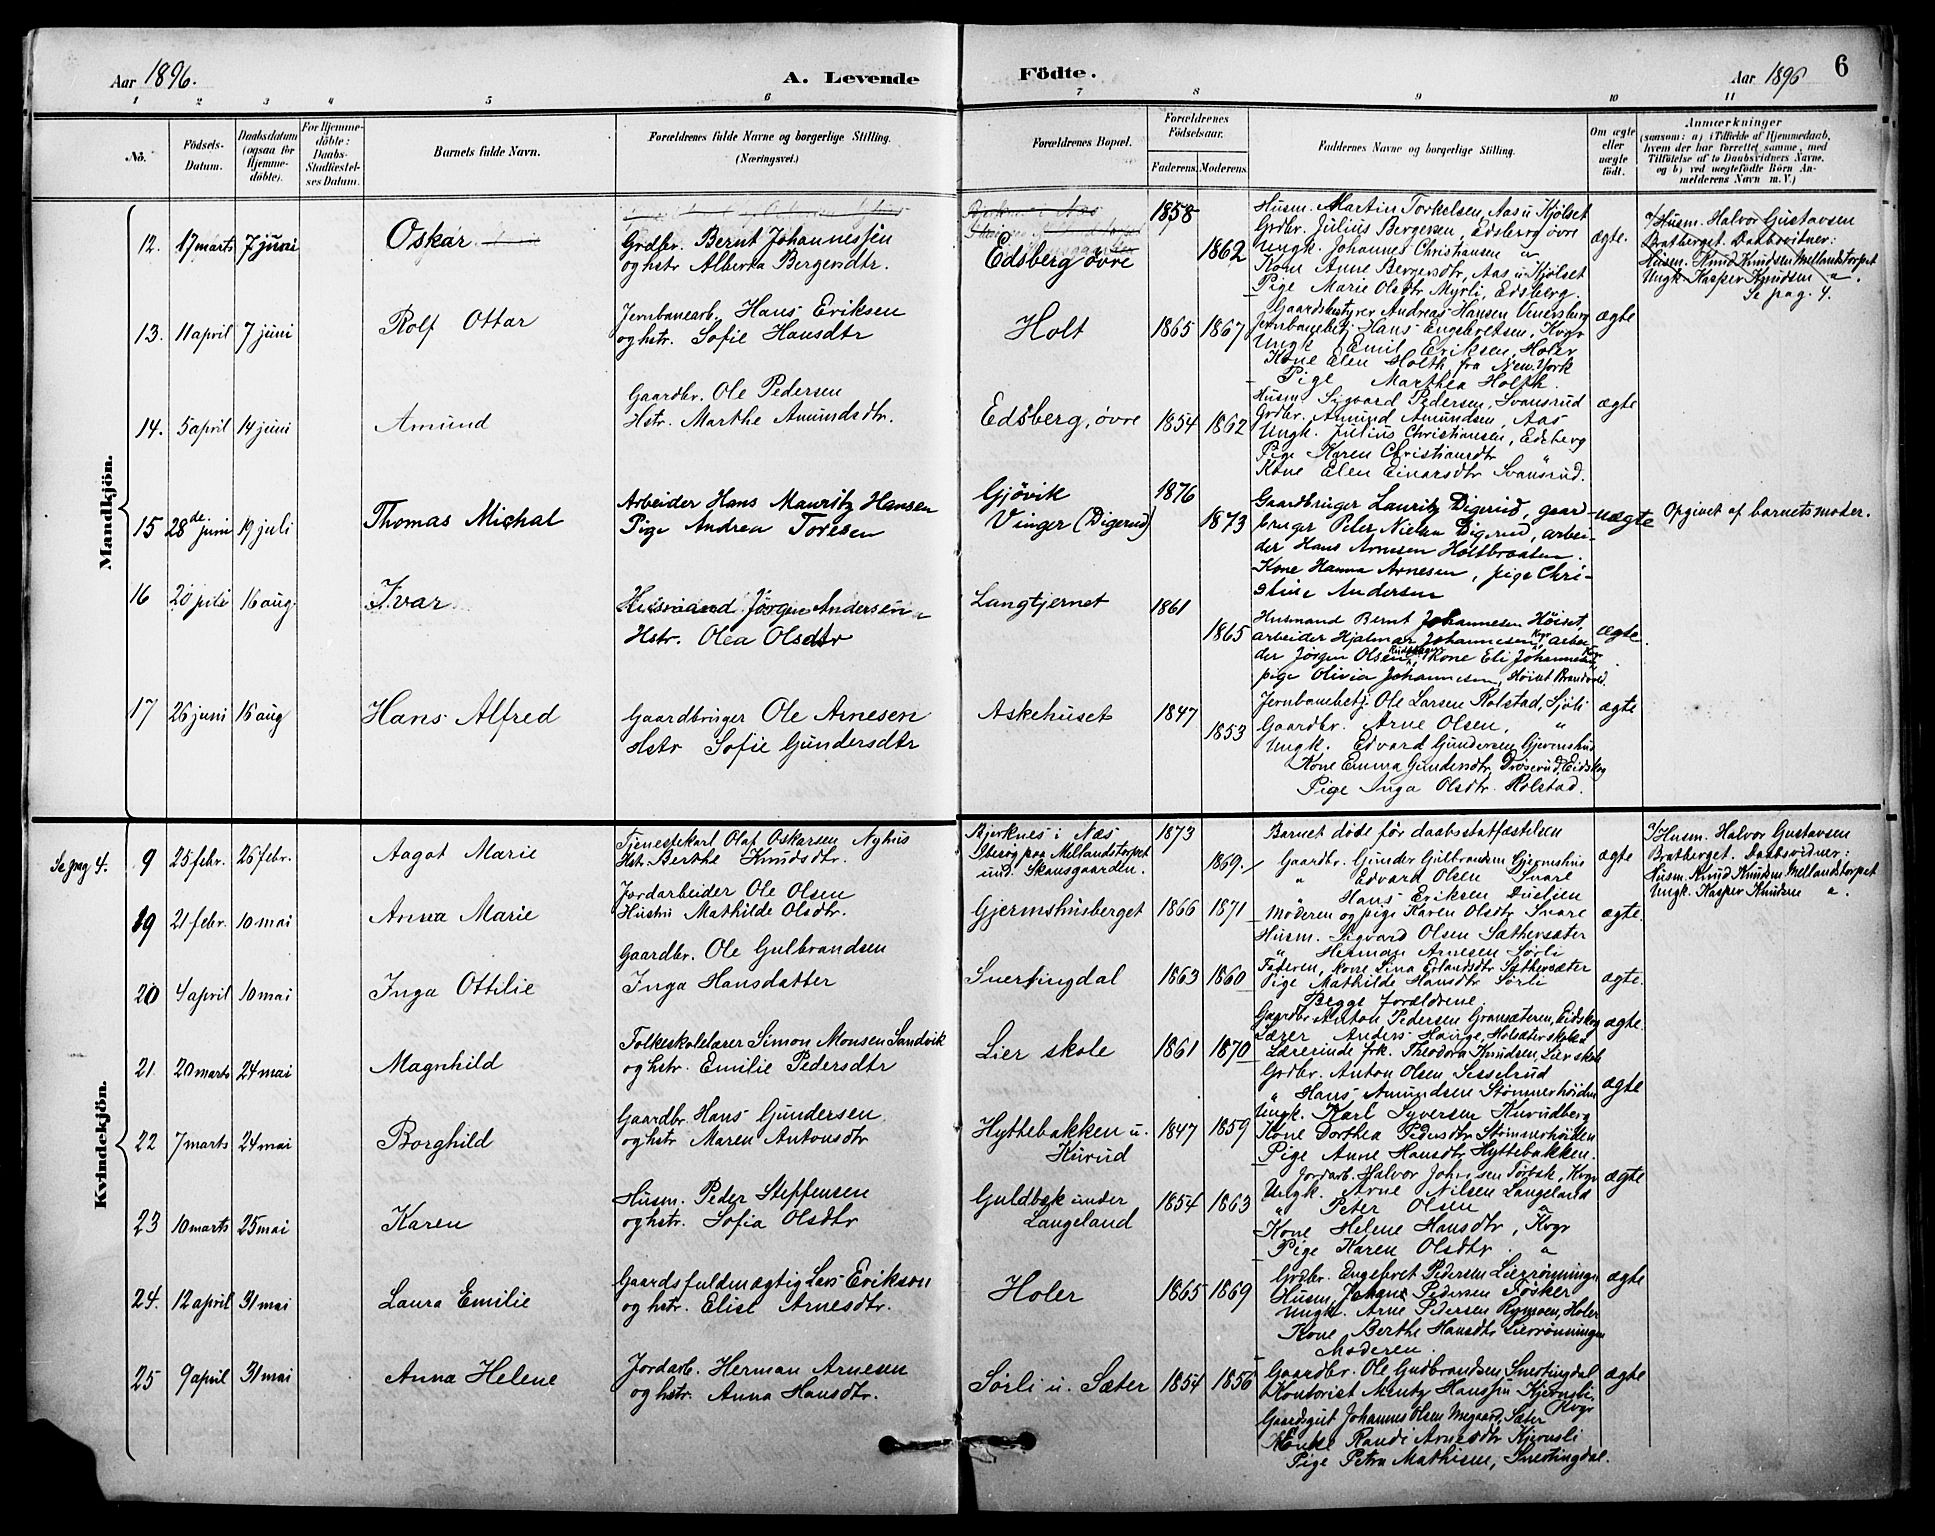 Aar 1896.
A. Levende Födte.
Aar 1896
6
1 2 3 4 5 6 7 8 9 10 11
No.
Födsels-Datum.
Daabsdatum (ogsaa för Hjemme-döbte).
For Hjemme-döbte: Daabs-Stadfæstel-ses Datum.
Barnets fulde Navn.
Forældrenes fulde Navne og borgerlige Stilling. (Næringsvei.)
Forældrenes Bopæl.
Forældrenes Födselsaar.
Faderens. Moderens.
Faddernes Navne og borgerlige Stilling.
Om ægte eller uægte födt.
Anmærkninger
(saasom: a) i Tilfælde af Hjemmedaab, hvem der har forrettet samme, med Tilföielse af to Daabsvidners Navne. og b) ved uægtefödte Börn An-melderens Navn m. V.)
Mandkjön.
12. 17 marts 7 juni
Oskar
Grdbr. Bernt Johannessen
og hstr Alberta Bergersdtr.
Edsberg øvre
1858
1862
Husm. Martin Torkelsen, Aas u Kjølset
Grdbr. Julius Bergersen, Edsberg øvre
Ungk. Johannes Christiansen "
Kone Anne Bergersdtr, Aas u Kjølset
Pige Marie Olsdtr Myrli, Edsberg.
ægte.
a/ Husm. Halvor Gustavsen
Bratberget. Daabsvitner:
Husm. Knud Knudsen Mellandstorpet
Ungk. Kasper Knudsen "
Se pag. 4.
13. 11 april 7 juni
Rolf Ottar
Jernbanearb. Hans Eriksen
og hstr. Sofie Hansdtr
Holt
1865 1867
Gaardsbestyrer Andreas Hansen Vinersberg
Jernbanebetj. Hans Engebretsen, Kvgr
Ungk Emil Eriksen, Holer
Kone Elen Holth fra New York
Pige Marthea Holth.
ægte
14. 5 april 14 juni
Amund
Gaardbr. Ole Pedersen
Hstr. Marthe Amundsdtr.
Edsberg, øvre
1854 1862
Husm. Sigvard Pedersen, Svansrud
Grdbr. Amund Amundsen, Aas
Ungk. Julius Christiansen, Edsberg
Pige Karen Christiansdtr "
Kone Elen Einarsdtr Svansrud.
ægte
15 28de juni 19 juli
Thomas Michal
Arbeider Hans Mauritz Hansen
Pige Andrea Toresen
Gjövik
Vinger (Digerud)
1876
1873
Gaardbruger Lauritz Digerud, gaard-
bruger Peter Nielsen Digerud, arbei-
der Hans Arnesen Holtbraaten.
Kone Hanna Arnesen, pige Chri-
stine Andersen
uægte
Opgivet af barnets moder.
16 20 juli 16 aug
Ivar
Husmand Jörgen Andersen
Hstr. Olea Olsdtr
Langtjernet
1861
1865
Husmand Bernt Johannesen Höiset,
arbeider Hjalmar Johannesen, Kvgr arbei-
der Jörgen Olsen, Kone Eli Johannesen
pige Olivia Johannesen, Höiset Brandvold.
ægte
17 26 juni 16 aug
Hans Alfred
Gaardbruger Ole Arnesen
Hstr Sofie Gundersdtr
Askehuset
1847
1853
Jernbanebetj. Ole Larsen Rolstad, Sjöli
Gaardbr. Arne Olsen, "
Ungk. Edvard Gundersen Gjermshus
Kone Emma Gundersdtr, Dröserud, Eidskog
Pige Inga Olsdtr. Rolstad.
ægte
Kvindekjön.
Se pag 4.
9 25 febr. 26 febr.
Aagot Marie
Tjenestekarl Olaf Oskarsen Nyhus
Hst. Berthe Knudsdtr.
Bjerknes i Næs
Iberig paa Mellandstorpet
und. Skansgaarden.
1873
1869.
Barnet døde før daabsstatfæstelsen
ægte
a/ Husm. Halvor Gustavsen
Bratberget. Daabsvidner:
Husm. Knud Knudsen Mellandstorpet
Ungk. Kasper Knudsen "
19 21 febr. 10 mai
Anna Marie
Jordarbeider Ole Olsen
Hustru Mathilde Olsdtr.
Gjermshusberget
1866 1871
Gaardbr. Gunder Gulbrandsen Gjermshus
" Edvard Olsen Svare
" Hans Eriksen Duelien
Moderen og pige Karen Olsdtr Svare
ægte.
20 4 april 10 mai
Inga Ottilie
Gaardbr. Ole Gulbrandsen
Inga Hansdatter
Snertingdal
1863 1860
Husm. Sigvard Olsen Sæthersæter
" Herman Arnesen Sørli
Faderen, kone Lina Erlandsdtr Sæthersæter
Pige Mathilde Hansdtr Sörli
ægte.
21 20 marts 24 mai
Magnhild
Folkeskolelærer Simon Monsen Sandvik
og hstr. Emilie Pedersdtr
Lier skole
1861 1870
Begge forældrene.
Gaardbr Anton Pedersen Gransæteren, Eidskog
Lærer Anders Hauge, Holsæter skole
Lærerinde frk. Theodora Knudsen, Lier skole
ægte.
22 7 marts 24 mai
Borghild
Gaardbr. Hans Gundersen
og hstr. Maren Antonsdtr
Hyttebakken u.
Kurud
1847 1859
Grdbr. Anton Olsen Sesselrud
" Hans Amundsen Stömmerhöiden
Ungk. Karl Syversen Kurudberg
Kone Dorthea Pedersdtr Stömmerhöiden
Pige Anne Hansdtr Hyttebakken.
ægte
23 10 marts 25 mai
Karen
Husm. Peder Steffensen
og hstr. Sofia Olsdtr
Guldbæk under
Langeland
1854 1863
Jordarb. Halvor Johnsen Torbak, Kvgr
Ungk. Arne Nilsen Langeland
" Peter Olsen "
Kone Helene Hansdtr, Kvgr
Pige Karen Olsdtr. "
ægte
24. 12 april 31 mai
Laura Emilie
Gaardsfuldmægtig Lars Erikson
og hstr. Elise Arnesdtr.
Holer
1865 1869
Grdbr. Engebret Pedersen Lierrönningen
Husm. Johans Pedersen Tösker
Ungk. Arne Pedersen Rymoen, Holer
Kone Berthe Hansdtr Lierrönningen
Moderen.
ægte
25 9 april 31 mai
Anna Helene
Jordarb. Herman Arnesen
og hstr. Anna Hansdtr.
Sörli u. Sæter
1854 1856
Gaardbr. Ole Gudbrandsen Snertingdal
Kontorist Mentz Hanssen Kjernsli
Kvgr
Gaardsgut Johannes Olsen Megaard, Sæter
Enke Randi Arnesdtr Kjernsli
Pige Petra Mathisen, Snertingdal.
ægte